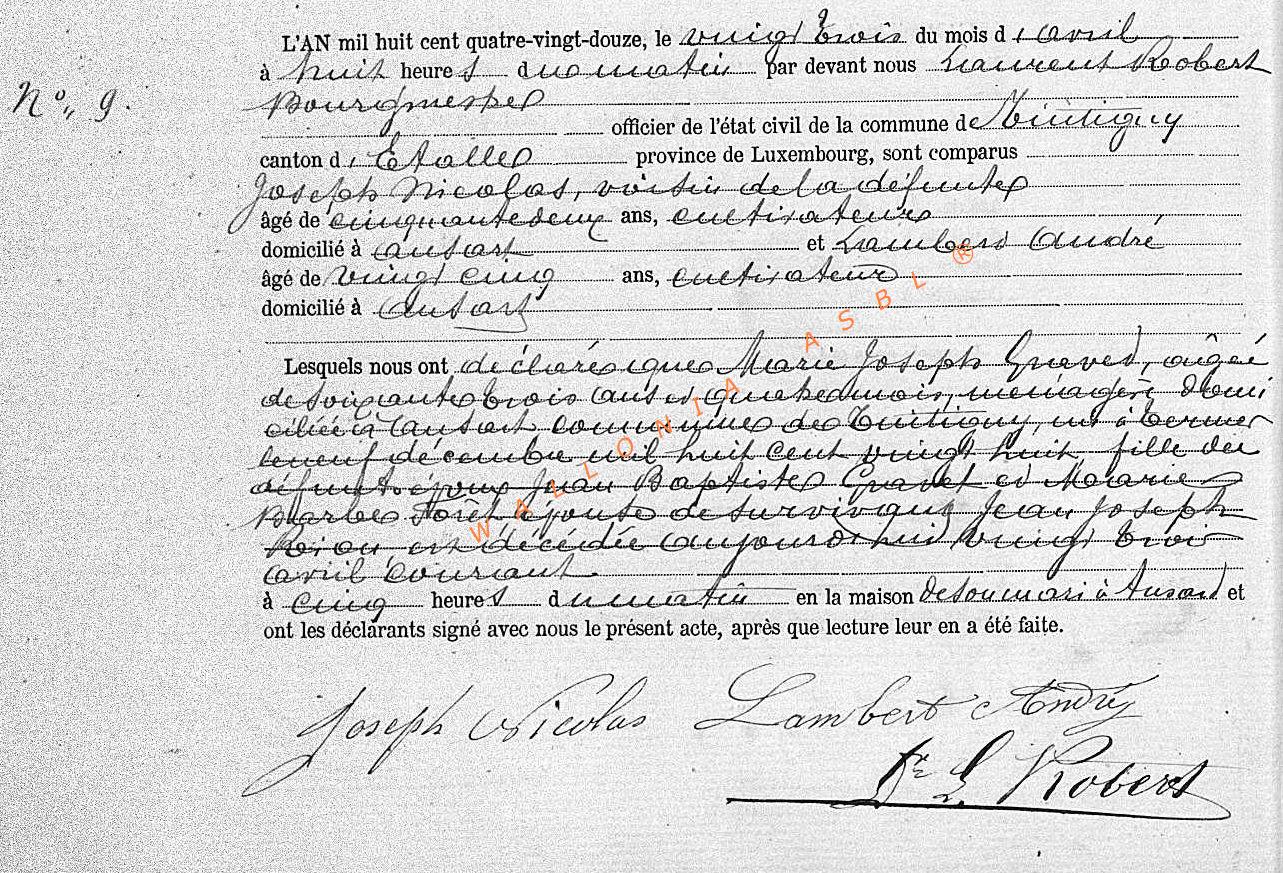 L'AN mil huit cent quatre-vingt-douze, le vingt trois du mois d'avril
à huit heures du matin par devant nous Laurent Robert
N° 9.
Bourgmestre
officier de l'état civil de la commune de Tintigny
canton d'Etalle province de Luxembourg, sont comparus
Joseph Nicolas, voisin de la défunte
âgé de cinquante deux ans, cultivateur
domicilié à ansart et Lambert André
âgé de vingt cinq ans, cultivateur
domicilié à ansart
Lesquels nous ont déclarés que Marie Joseph Gravet, âgée
de soixante trois ans et quatre mois, ménagère domi
ciliée à ansart commune de Tintigny, née à
le neuf décembre mil huit cent vingt huit, fille des
défunts époux Jean Baptiste Gravet et Marie
Barbe épouse de survivant Jean Joseph
est décédée aujourd'hui vingt trois
avril courant
à cinq heures du matin en la maison de son mari à Ansart et
ont les déclarants signé avec nous le présent acte, après que lecture leur en a été faite.
Joseph Nicolas Lambert André
Dr L. Robert
WALLONIA ASBL ®